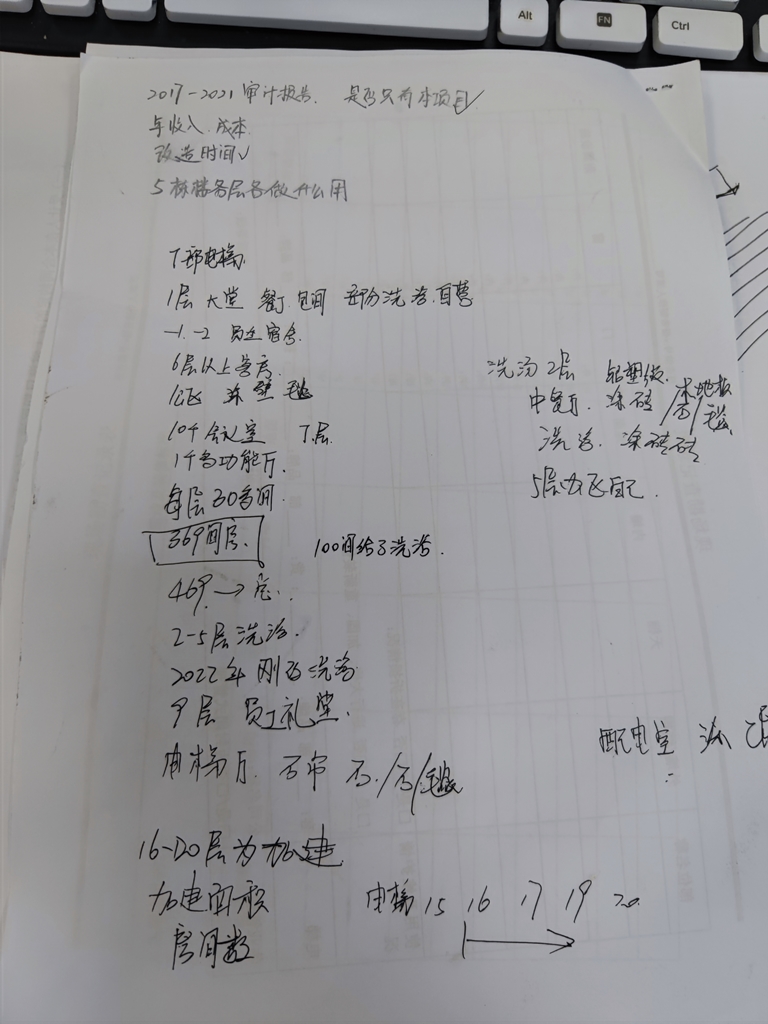 2017-2021审计报告. 是否只有本项目✓
年收入.成本.
改造时间✓
5栋楼各层各做什么用
7部电梯
1层 大堂 餐厅 包间 部分洗浴.自营
-1.-2 员工宿舍.
6层以上客房.
10个会议室 7层.
1个多功能厅.
每层30多间.
369间房. 100间给了洗浴.
469 → 房..
2-5层洗浴.
2022年刚改洗浴
9层 员工礼堂.
电梯厅. 石帘 石/石/毯
16-20层为加建
加建面积
房间数
洗浴2层 铝塑板.
中餐厅. 涂砖/木地板
洗浴. 涂砖砖
5层
配电室 涂
电梯 15 16 17 19 20
Alt
FN
Ctrl